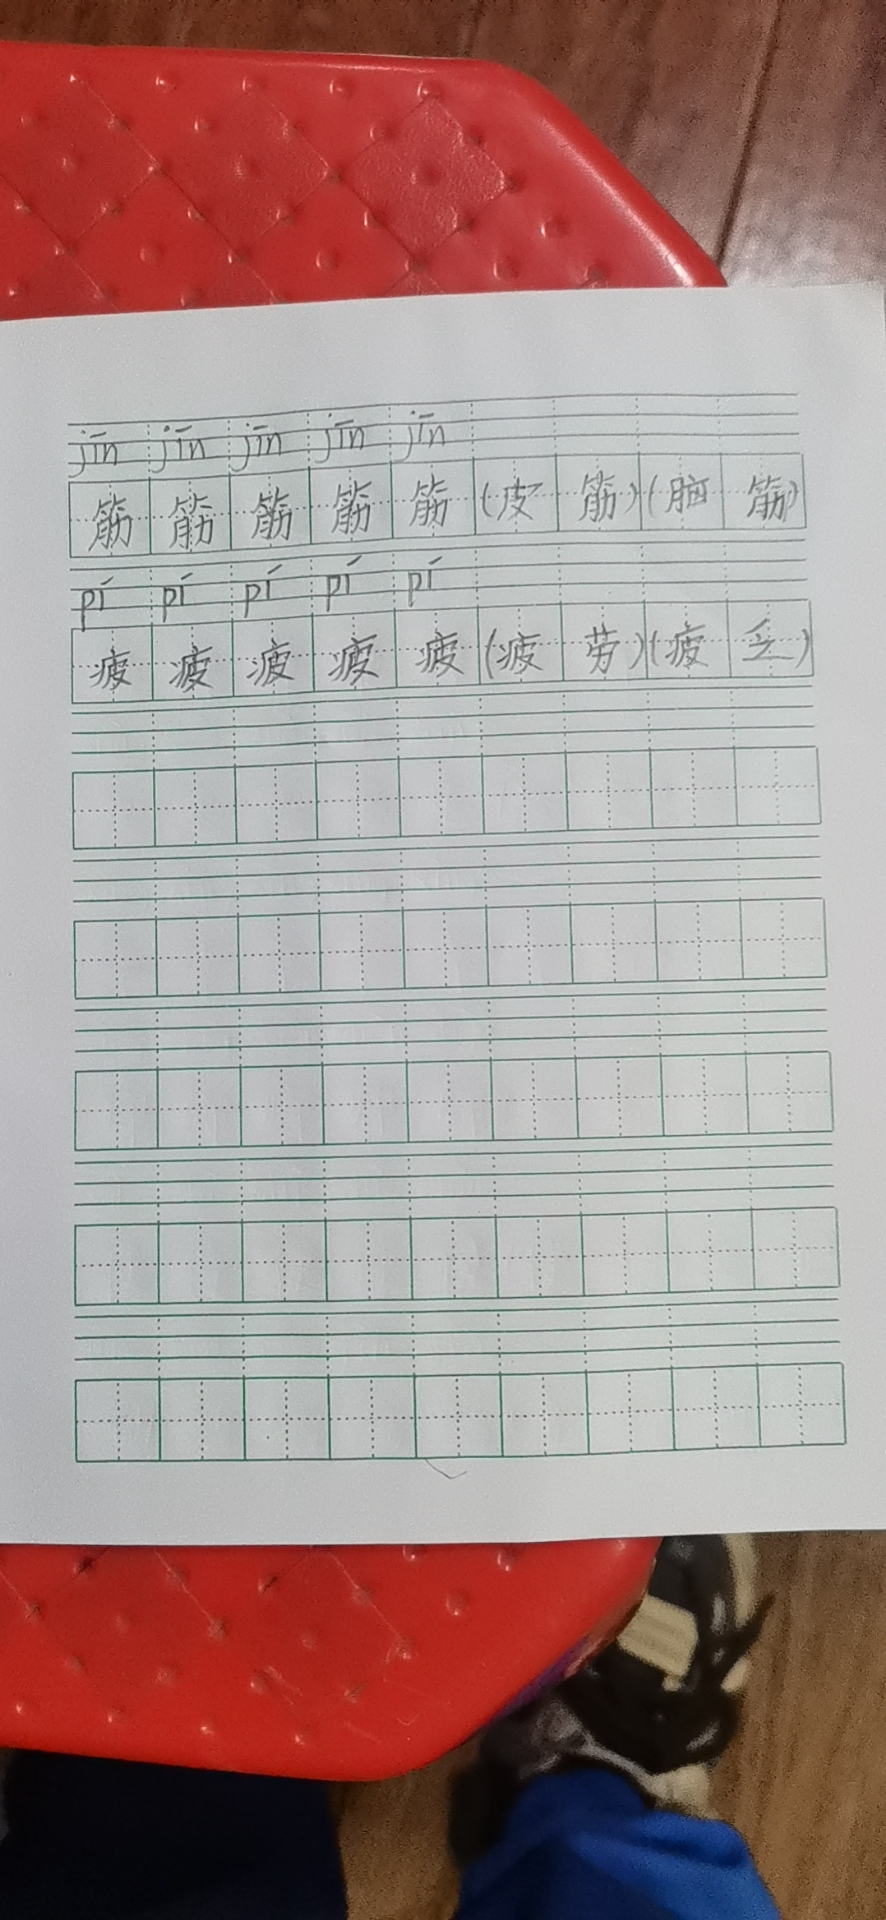 jīn jīn jīn jīn jīn
筋 筋 筋 筋 筋 (皮 筋) (脑 筋)
pí pí pí pí pí
疲 疲 疲 疲 疲 (疲 劳) (疲 乏)